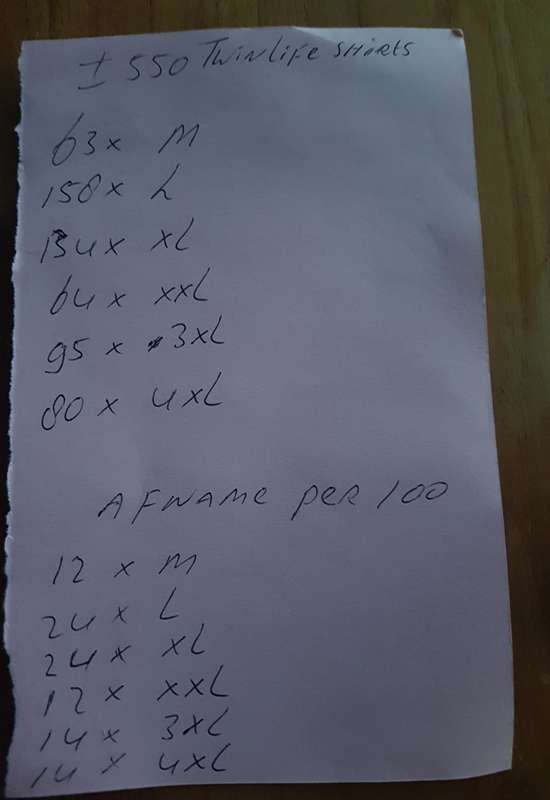 ± 550 Twinlife SHIRTS
63 x M
158 x L
134 x XL
64 x XXL
95 x 3XL
80 x 4XL
AFNAME per 100
12 x M
24 x L
24 x XL
12 x XXL
14 x 3XL
14 x 4XL